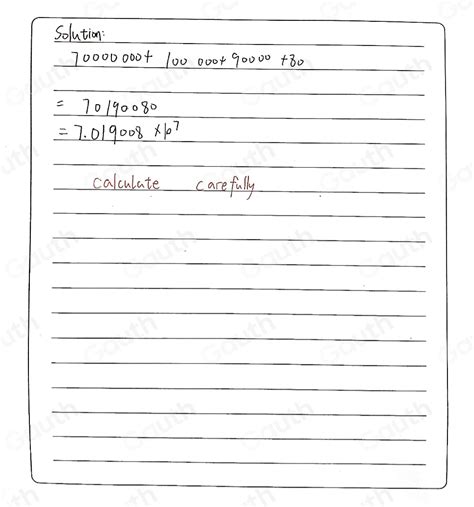 Solution:
70000000+ 100 000+ 90000 +80
= 70190080
= 7.019008 ×10⁷
calculate carefully